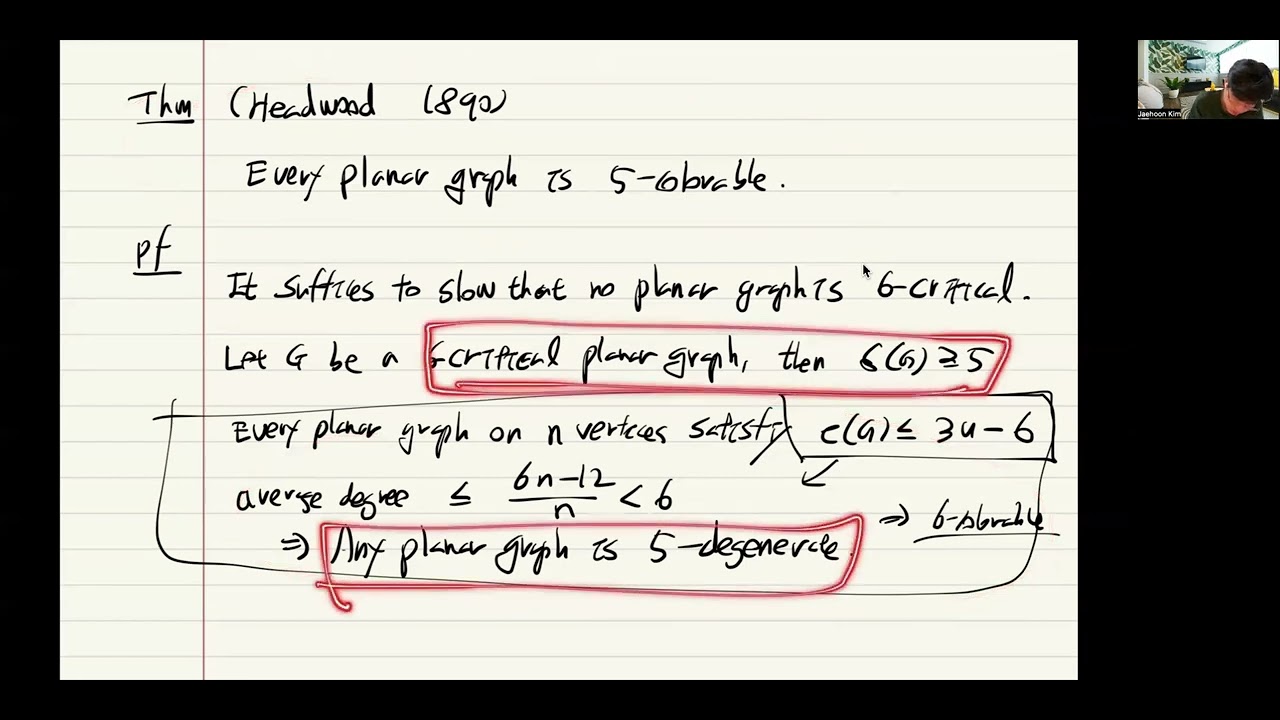 Thm (Headwood 1890)
Every planar graph is 5-colorable.
pf
It suffices to show that no planar graph is 6-critical.
Let G be a 6-critical planar graph, then δ(G) ≥ 5
Every planar graph on n vertices satisfy e(G) ≤ 3n - 6
average degree ≤ 6n-12/n < 6
⇒ 6-colorable
⇒ Any planar graph is 5-degenerate.
Jaehoon Kim